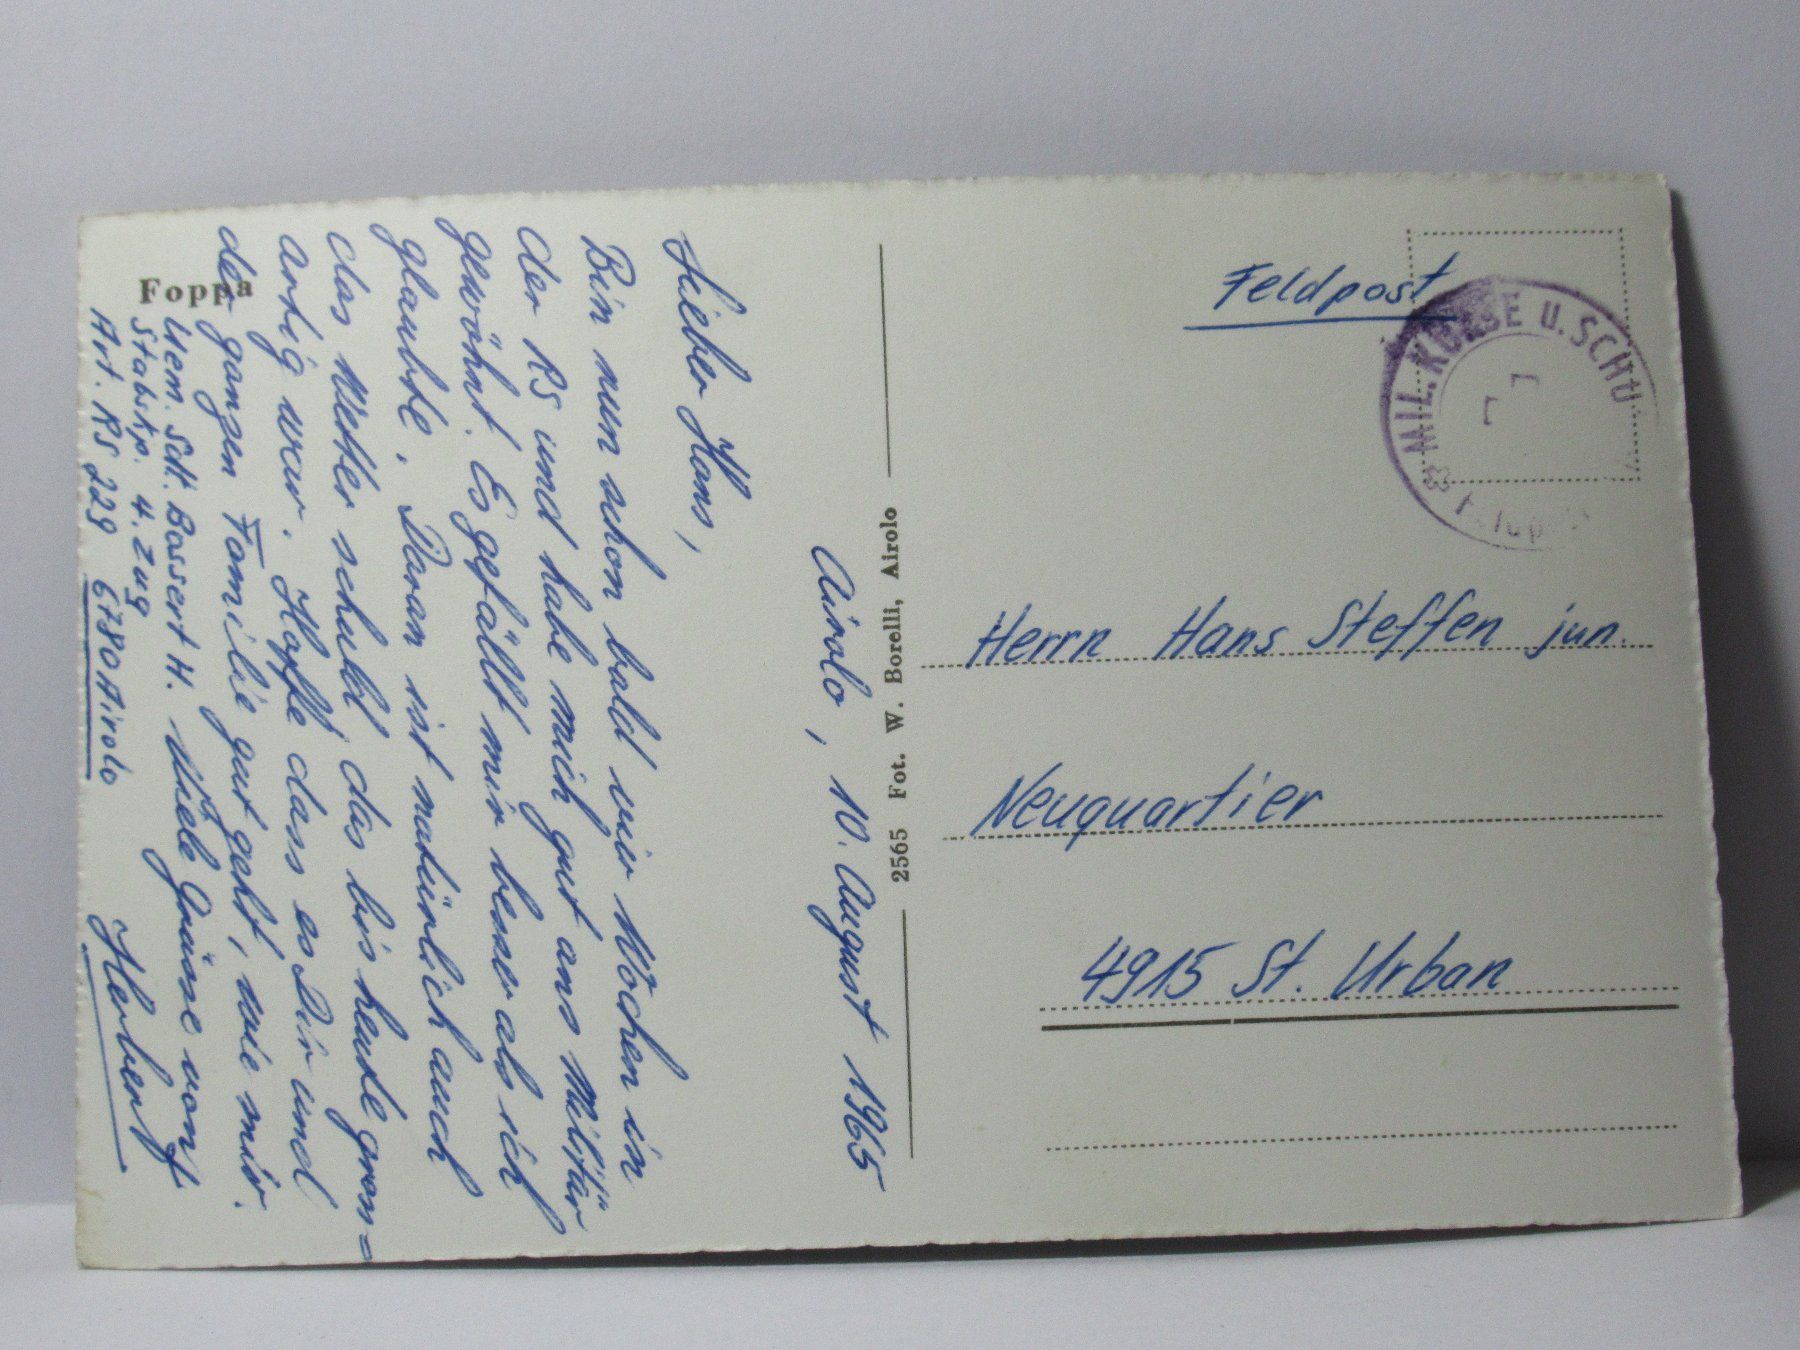 Airolo, 10. August 1965
Lieber Hans,
Bin nun schon bald vier Wochen in
der RS und habe mich gut ans Militär
gewöhnt. Es gefällt mir besser als ich
glaubte. Daran ist natürlich auch
das Wetter schuld, das bis heute gross-
artig war. Hoffe dass es Dir und
der ganzen Familie gut geht, wie mir.
Viele Grüsse von
Herbert
Uem. Sdt. Bossert H.
Stabskp. 4. Zug
Art. RS 229 6780 Airolo
Foppa
2565 Fot. W. Borelli, Airolo
Feldpost
MIL. KURSE U. SCHU
Herrn Hans Steffen jun.
Neuquartier
4915 St. Urban